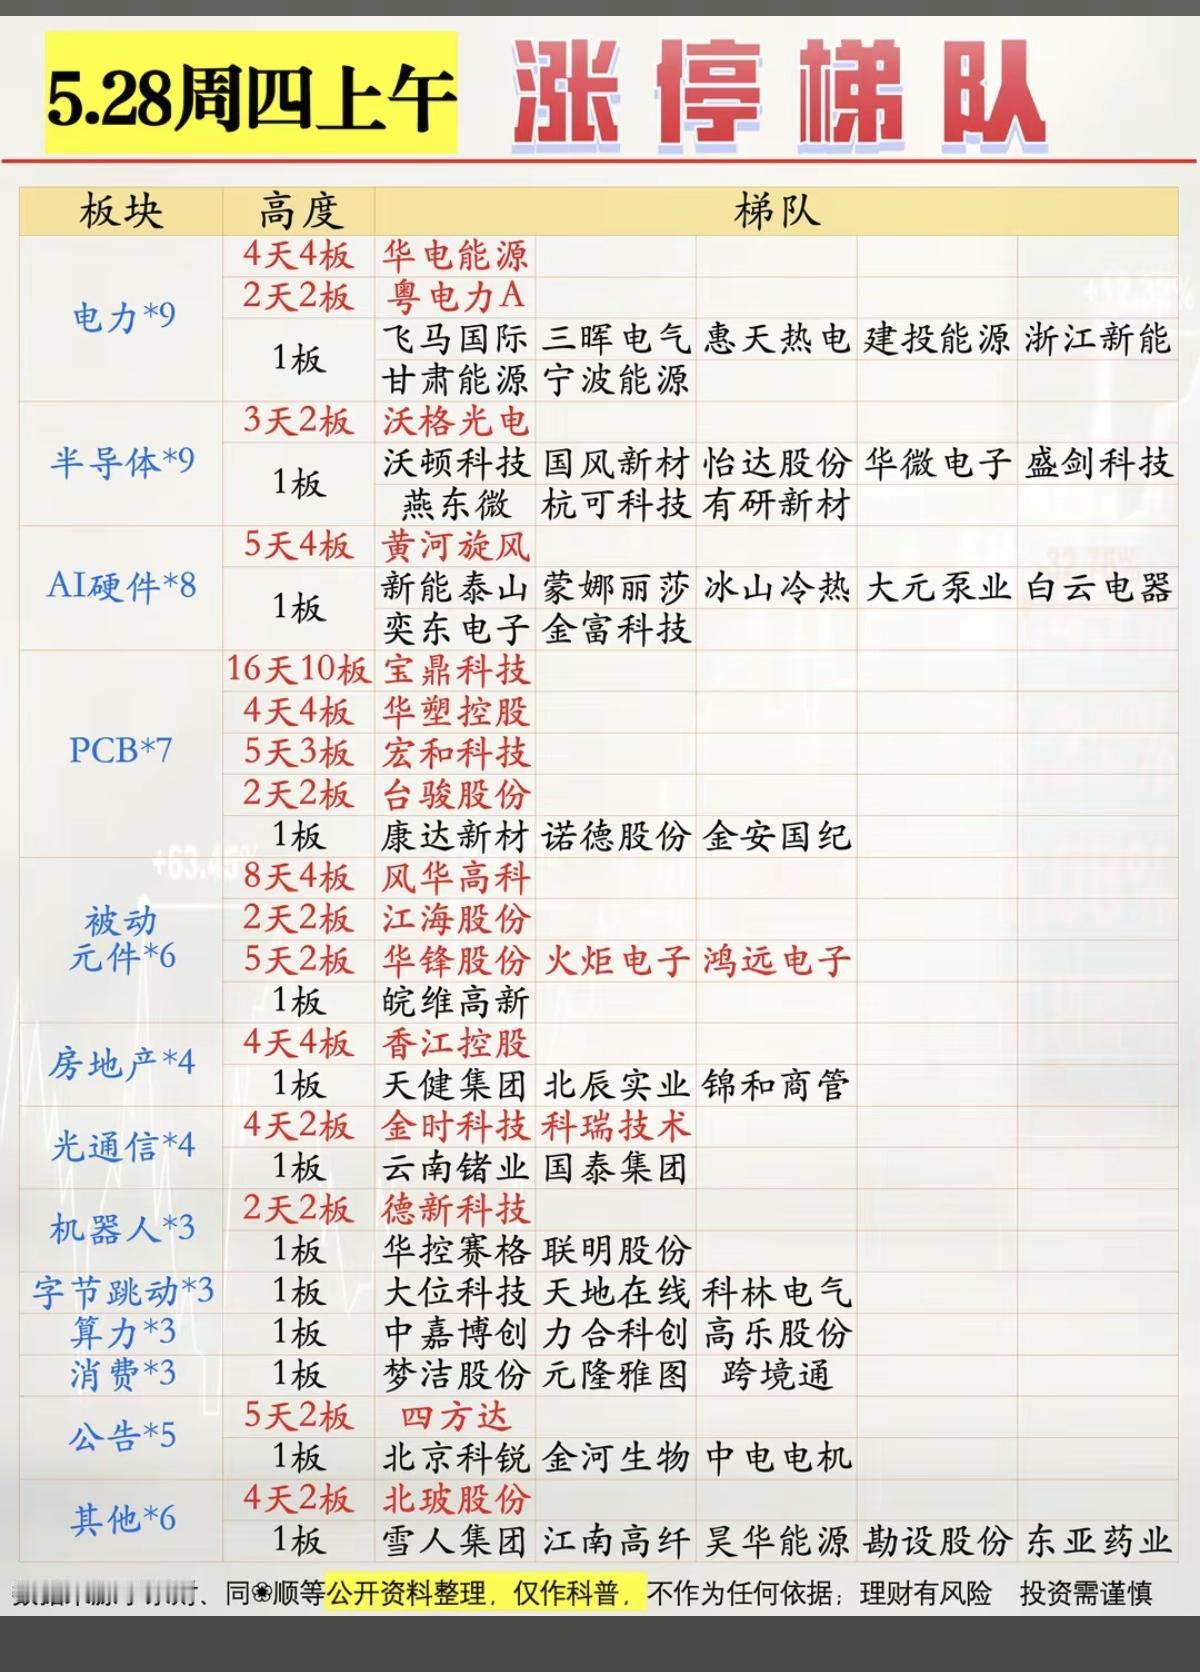 5.28周四上午 涨停梯队
板块 高度 梯队
电力*9
4天4板 华电能源
2天2板 粤电力A
1板 飞马国际 三晖电气 惠天热电 建投能源 浙江新能
甘肃能源 宁波能源
半导体*9
3天2板 沃格光电
1板 沃顿科技 国风新材 怡达股份 华微电子 盛剑科技
燕东微 杭可科技 有研新材
AI硬件*8
5天4板 黄河旋风
1板 新能泰山 蒙娜丽莎 冰山冷热 大元泵业 白云电器
奕东电子 金富科技
PCB*7
16天10板 宝鼎科技
4天4板 华塑控股
5天3板 宏和科技
2天2板 台骏股份
1板 康达新材 诺德股份 金安国纪
被动
元件*6
8天4板 风华高科
2天2板 江海股份
5天2板 华锋股份 火炬电子 鸿远电子
1板 皖维高新
房地产*4
4天4板 香江控股
1板 天健集团 北辰实业 锦和商管
光通信*4
4天2板 金时科技 科瑞技术
1板 云南锗业 国泰集团
机器人*3
2天2板 德新科技
1板 华控赛格 联明股份
字节跳动*3 1板 大位科技 天地在线 科林电气
算力*3 1板 中嘉博创 力合科创 高乐股份
消费*3 1板 梦洁股份 元隆雅图 跨境通
公告*5
5天2板 四方达
1板 北京科锐 金河生物 中电电机
其他*6
4天2板 北玻股份
1板 雪人集团 江南高纤 昊华能源 勘设股份 东亚药业
、同❀顺等公开资料整理，仅作科普，不作为任何依据；理财有风险 投资需谨慎